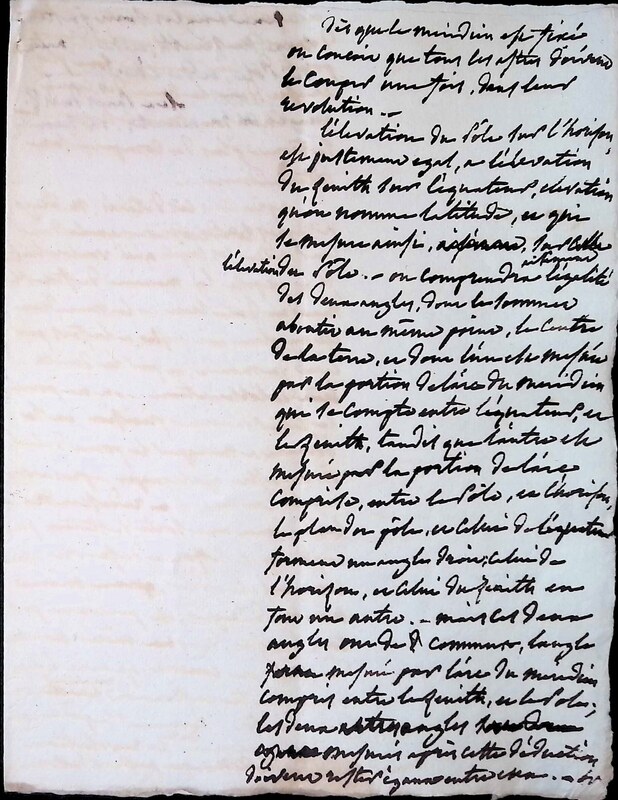 Dès que le meridien est fixé
on conçoit que tous les astres doivent
le couper une fois, dans leur
revolution. –
l'élevation du Pôle sur l'horison,
est justement egal, a l'élevation
du zenith sur l'equateur, elevation
qu'on nomme latitude, et qui
se mesure ainsi, sur celle
l'élevation du Pôle. – on comprendra aisement l'egalité
des deux angles, dont le sommet
aboutit au même point, le centre
de la terre, et dont l'un est mesuré
par la portion de l'arc du meridien
qui se compte entre l'equateur, et
le zenith, tandis que l'autre est
mesuré par la portion de l'arc
comprise, entre le Pôle, et l'horison,
le plan du pôle, et celui de l'equateur
forment un angle droit, celui de
l'horizon, et celui du zenith en
font un autre. – mais ces deux
angles ont de commun, l'angle
mesuré par l'arc du meridien
compris entre le zenith, et le Pole;
les deux angles
mesurés après cette déduction
doivent rester egaux entre eux. –